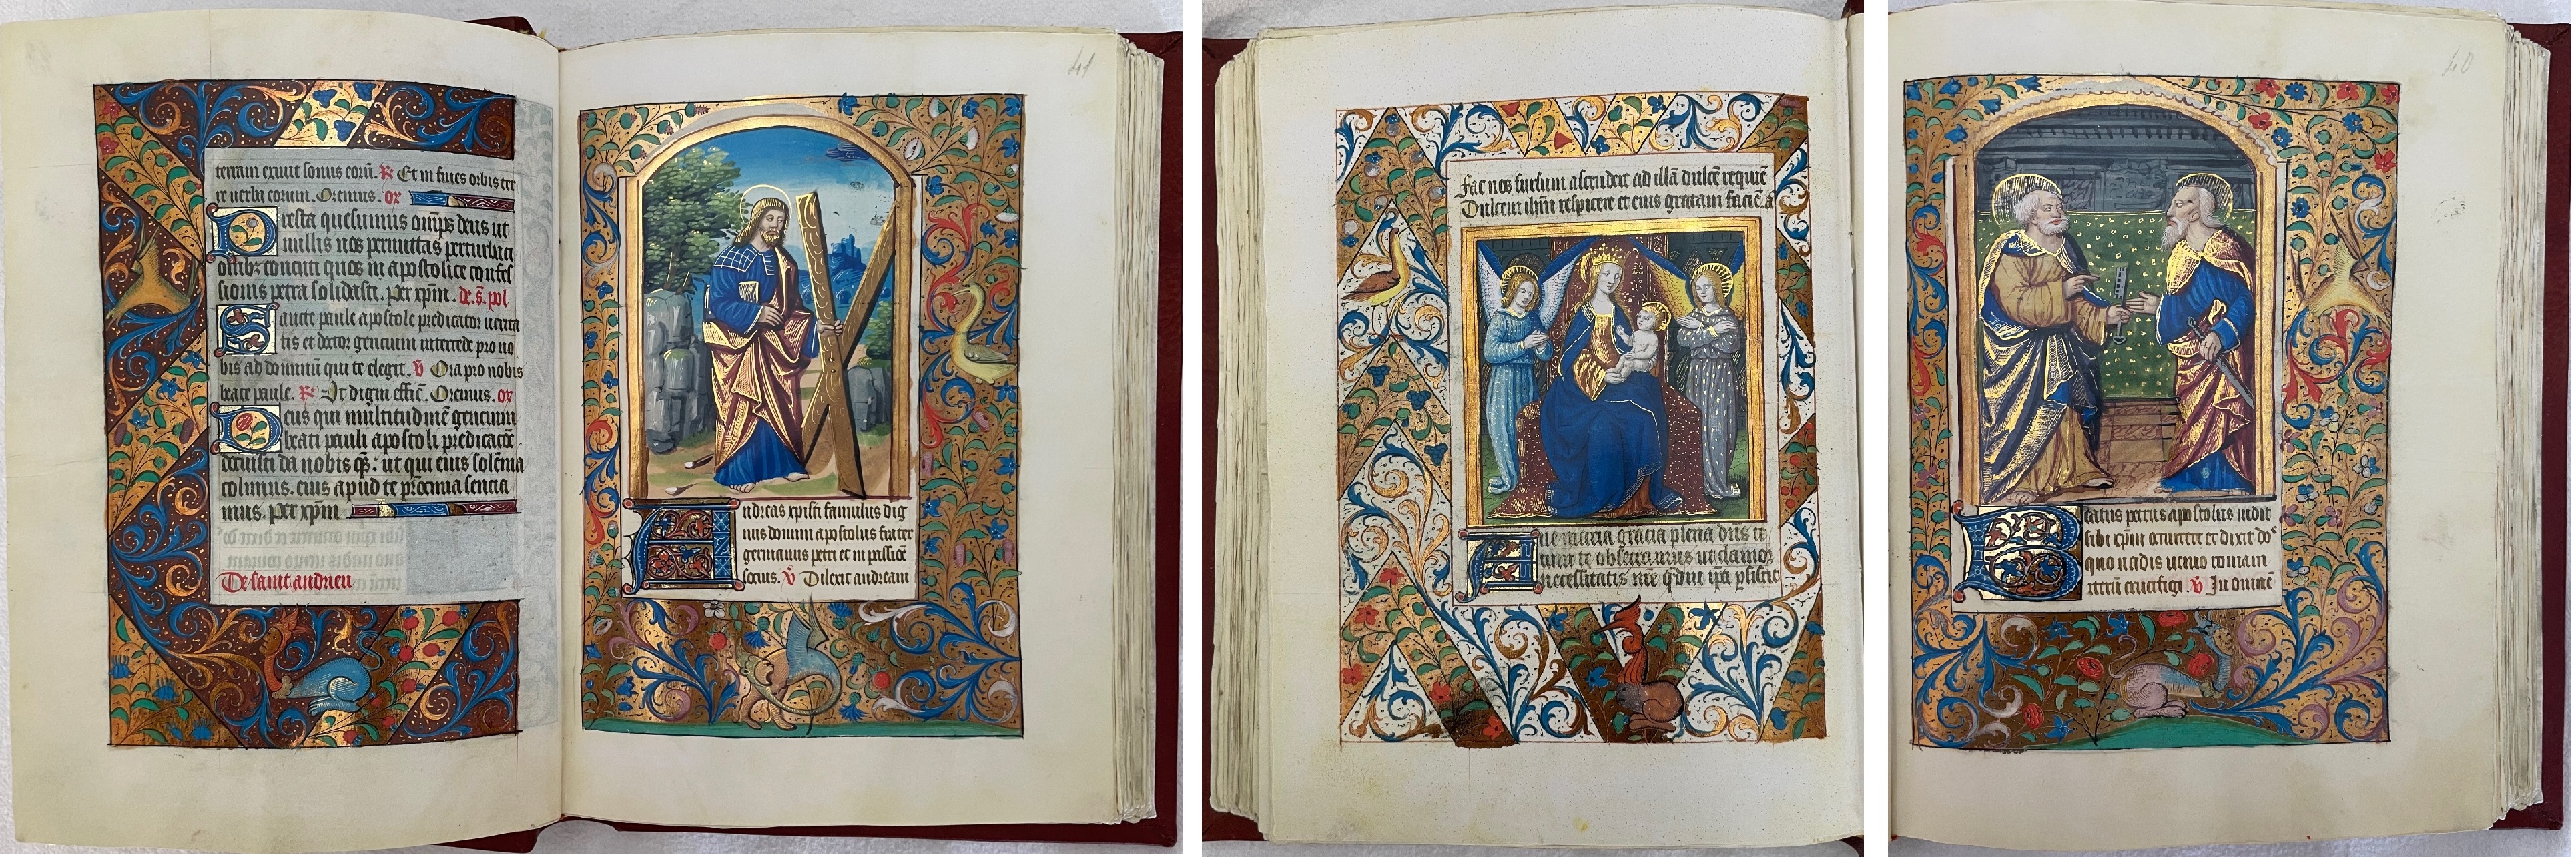 terram exiuit sonus eorū. ꝶ Et in fines orbis ter
re uerba eorum. Oremus. or̄
Presta quesumus om̄ps deus ut
nullis nos permittas perturbaci
onibꝫ concuti quos in apostolice confes
sionis petra solidasti. Per xp̄m. de.s̄.pol
Sancte paule apostole predicator uerita
tis et doctor gencium intercede pro no
bis ad dominū qui te elegit. v̄ Ora pro nobis
beate paule. ꝶ Vt digni effic̄. Oremus. or̄
Deus qui multitudinē gencium
beati pauli apostoli predicacōe
docuisti da nobis q̄s: ut qui eius solēnia
colimus. eius apud te patrocinia sencia
mus. Per xp̄m
De saint andrieu
41
Andreas xpisti famulus dig
nus domini apostolus frater
germanus petri et in passiōe
socius. v̄ Dilexit andream
fac nos sursum ascendere ad illā dulcē requiē
Dulcem ihm̄ respicere et eius gratam faciē. a
Aue maria gracia plena dn̄s te
cum te obsecramus ut clamor
necessitatis nr̄e
40
Beatus petrus apostolus uidit
sibi xp̄m occurrere et dixit do
quo uadis uenio romam
iterū crucifigi. v̄ In omnē